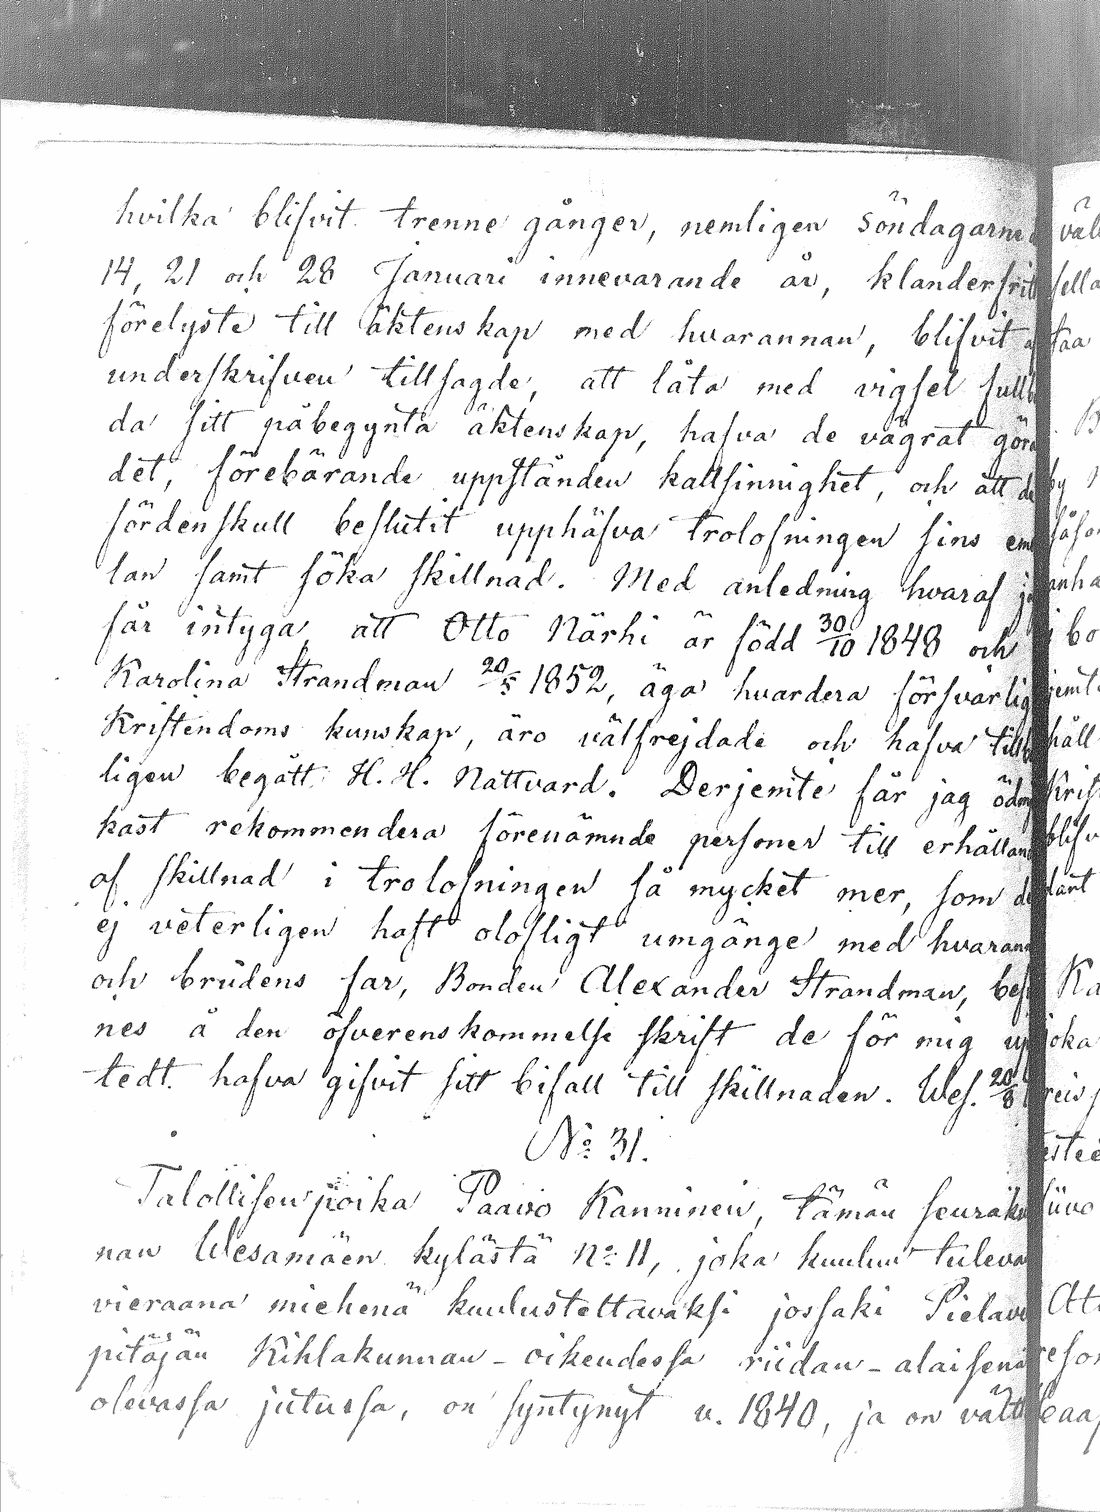 hvilka blifvit trenne gånger, nemligen söndagarne
14, 21 och 28 Januari innevarande år, klanderfritt
förelyste till äktenskap med hvarannan, blifvit
underskrifven tillsagde, att låta med vigsel full
da sitt påbegynta äktenskap, hafva de vägrat göra
det, förebärande uppstånden kallsinnighet, och att de
fördenskull beslutit upphäfva trolofningen sins em
lan samt söka skillnad. Med anledning hvaraf
får intyga att Otto Närhi är född 30/10 1848 och
Karolina Strandman 20/5 1852, äga hvardera försvarlig
Kristendoms kunskap, äro välfrejdade och hafva
ligen begått H. H. Nattvard. Derjemte får jag ödmj
kast rekommendera förenämnde personer till erhålland
af skillnad i trolofningen så mycket mer, som de
ej veterligen haft olofligt umgänge med hvarann
och brudens far, Bonden Alexander Strandman, bef
nes å den öfverenskommelse skrift de för mig up
tedt hafva gifvit sitt bifall till skillnaden. Wes. 20/8
No 31.
Talollisen poika Paavo Kanninen, tämän seuraku
nan Wesamäen kylästä No 11, joka kuuluu tuleva
vieraana miehenä kuulusteltavaksi jossaki Pielave
pitäjän Kihlakunnan-oikeudessa riidan-alaisena
olevassa jutussa, on syntynyt v. 1840, ja on vält